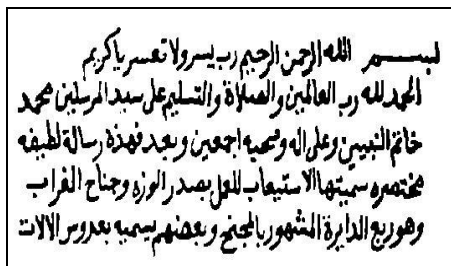 لبسم الله الرحمن الرحيم رب يسر ولا تعسر يا كريم
الحمد لله رب العالمين والصلاة والتسليم على سيد المرسلين محمد
خاتم النبيين وعلى اله وصحبه اجمعين وبعد فهذه رسالة لطيفه
مختصره سميتها الاستيعاب للعمل بصدر الوزه وجناح الغراب
وهو ربع الدايرة المشهور بالمجنح وبعضهم يسميه بعروس الالات